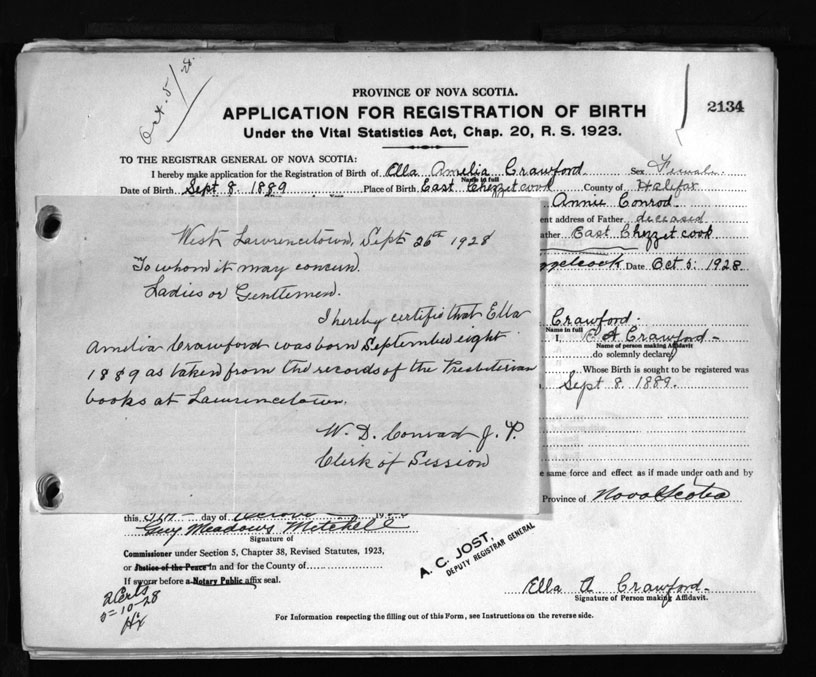 Oct. 5/28.
PROVINCE OF NOVA SCOTIA.
2134
APPLICATION FOR REGISTRATION OF BIRTH
Under the Vital Statistics Act, Chap. 20, R. S. 1923.
TO THE REGISTRAR GENERAL OF NOVA SCOTIA:
I hereby make application for the Registration of Birth of Ella Amelia Crawford Sex Female
Name in full
Date of Birth Sept 8. 1889 Place of Birth East Chezzetcook County of Halifax
Annie Conrod.
ent address of Father deceased
ather East Chezzetcook
zzetcook Date Oct 5: 1928.
West Lawrencetown, Sept 26th 1928
To whom it may concern.
Ladies or Gentlemen.
I hereby certifie that Ella
Amelia Crawford was born September eight
1889 as taken from the records of the Presbiterian
books at Lawrencetown.
W. D. Conrad J. P.
Clerk of Session
Crawford.
Name in full
I, E A Crawford
Name of person making Affidavit
do solemnly declare
Whose Birth is sought to be registered was
Sept 8. 1889.
same force and effect as if made under oath and by
Province of Nova Scotia
this day of
Guy Meadows Mitchell
Signature of
Commissioner under Section 5, Chapter 38, Revised Statutes, 1923,
or Justice of the Peace in and for the County of
If sworn before a Notary Public affix seal.
A. C. JOST,
DEPUTY REGISTRAR GENERAL
2 Certs
5-10-28
Hx
Ella A Crawford
Signature of Person making Affidavit.
For Information respecting the filling out of this Form, see Instructions on the reverse side.